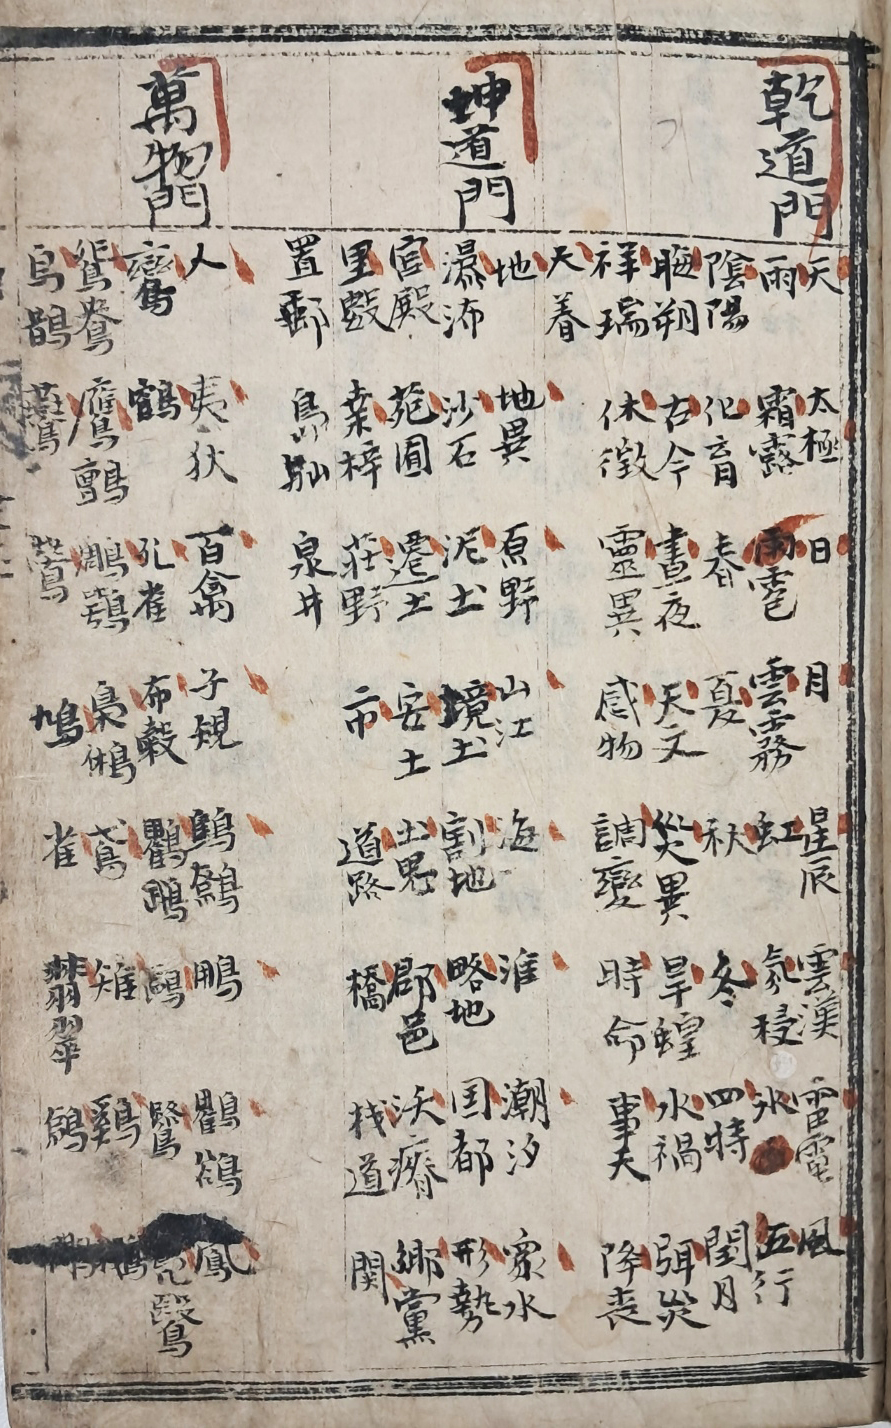 乾道門
天 太極 日 月 星辰 雲漢 雷電 風
雨 霜露 雨雹 雲霧 虹 氛祲 氷 五行
陰陽 化育 春 夏 秋 冬 四時 閏月
晦朔 古今 晝夜 天文 災異 旱蝗 水禍 弭災
祥瑞 休徵 靈異 感物 調變 時命 事天 降喪
天養
坤道門
地 地異 原野 山江 海 淮 潮汐 衆水
瀑沛 沙石 泥土 境土 割地 略地 囯都 形勢
宮殿 苑囿 遷土 安土 土界 郡邑 沃瘠 鄉黨
里數 桑梓 荘野 市 道路 橋 栈道 関
置郵 島屿 泉井
萬物門
人 夷狄 百禽 子規 鷦鷯 鵬 鸛 鳳
鸞 鶴 孔雀 布穀 鷗 鷖
鴛鴦 鷹鸇 鵰鶚 梟鵂 鳶 雉 鷄
烏鵲 鷰 鶯 鳩 雀 翡翠